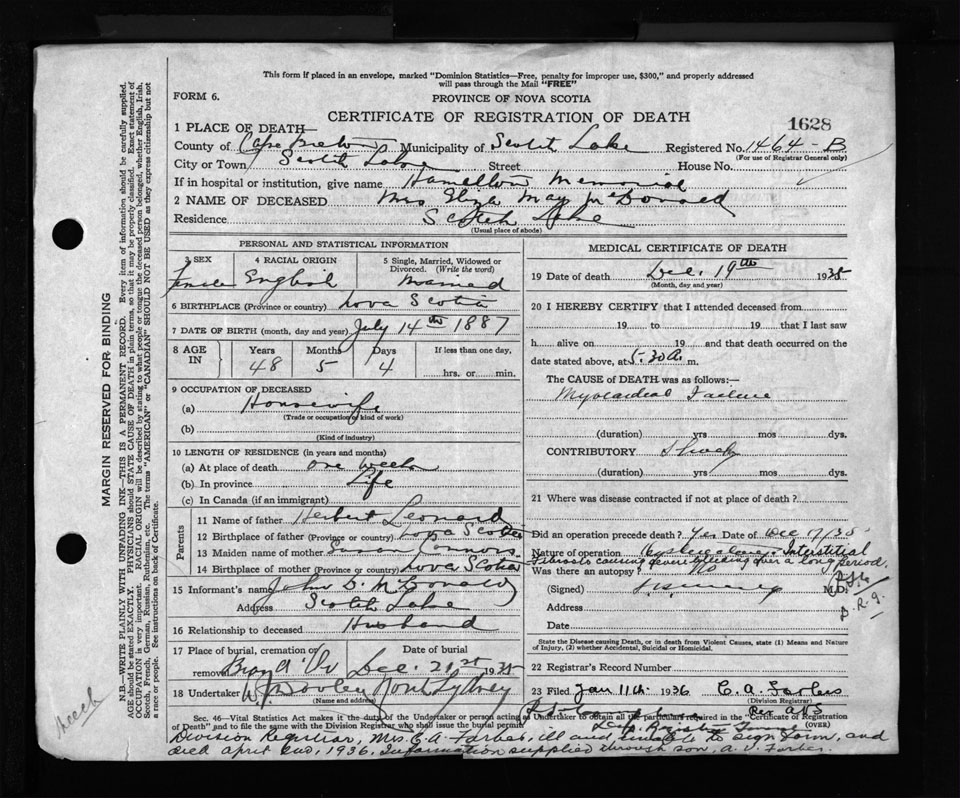 This form if placed in an envelope, marked "Dominion Statistics—Free, penalty for improper use, $300," and properly addressed
will pass through the Mail "FREE"
FORM 6.
PROVINCE OF NOVA SCOTIA
CERTIFICATE OF REGISTRATION OF DEATH
1628
1 PLACE OF DEATH—
County of Cape Breton Municipality of Scotch Lake Registered No. 1464-B
(For use of Registrar General only)
City or Town Scotch Lake Street House No.
If in hospital or institution, give name Hamilton Memorial
2 NAME OF DECEASED Mrs Eliza May McDonald
Residence Scotch Lake
(Usual place of abode)
PERSONAL AND STATISTICAL INFORMATION
3 SEX 4 RACIAL ORIGIN 5 Single, Married, Widowed or Divorced. (Write the word)
Female English Married
6 BIRTHPLACE (Province or country) Nova Scotia
7 DATE OF BIRTH (month, day and year) July 14th 1887
8 AGE IN Years Months Days If less than one day,
48 5 4 hrs. or min.
9 OCCUPATION OF DECEASED
(a) Housewife
(Trade or occupation or kind of work)
(b)
(Kind of industry)
10 LENGTH OF RESIDENCE (in years and months)
(a) At place of death one week
(b) In province Life
(c) In Canada (if an immigrant)
Parents
11 Name of father Herbert Leonard
12 Birthplace of father (Province or country) Nova Scotia
13 Maiden name of mother Susan Connors
14 Birthplace of mother (Province or country) Nova Scotia
15 Informant's name John D. McDonald
Address Scotch Lake
16 Relationship to deceased Husband
17 Place of burial, cremation or removal Date of burial
Bras d'Or Dec. 21st 1935
18 Undertaker W. J. Dooley North Sydney
(Name and address)
MEDICAL CERTIFICATE OF DEATH
19 Date of death Dec. 19th 1935
(Month, day and year)
20 I HEREBY CERTIFY that I attended deceased from
19 to 19 that I last saw
h alive on 19 and that death occurred on the
date stated above, at 5.30 A. m.
The CAUSE OF DEATH was as follows:—
Myocardial Failure
(duration) yrs mos dys.
CONTRIBUTORY Shock
(duration) yrs mos dys.
21 Where was disease contracted if not at place of death?
Did an operation precede death? Yes Date of Dec 17/35
Nature of operation Hysterectomy - Interstitial
Fibroids causing severe bleeding over a long period.
Was there an autopsy? No
(Signed) M.D.
Address
Date
State the Disease causing Death, or in death from Violent Causes, state (1) Means and Nature
of Injury, (2) whether Accidental, Suicidal or Homicidal.
22 Registrar's Record Number
23 Filed Jan 11th 1936 C. A. Forbes
(Division Registrar)
Sec. 46—Vital Statistics Act makes it the duty of the Undertaker or person acting as Undertaker to obtain all the particulars required in the "Certificate of Registration
of Death" and to file same with the Division Registrar who shall issue the burial permit
(OVER)
Division Registrar, Mrs. C. A. Forbes, ill and unable to sign form, and
died April 2nd, 1936. Information supplied through son, A. V. Forbes.
MARGIN RESERVED FOR BINDING
N.B.—WRITE PLAINLY WITH UNFADING INK—THIS IS A PERMANENT RECORD. Every item of information should be carefully supplied.
AGE should be stated EXACTLY. PHYSICIANS should STATE CAUSE OF DEATH in plain terms, that it may be properly classified. Exact statement of
OCCUPATION is very important. RACIAL ORIGIN will be described by stating to what people or tongue the deceased person belonged, whether English, Irish,
Scotch, French, German, Russian, Ruthenian, etc. The terms "AMERICAN" or "CANADIAN" SHOULD NOT BE USED as they express citizenship but not
a race or people. See instructions on back of Certificate.